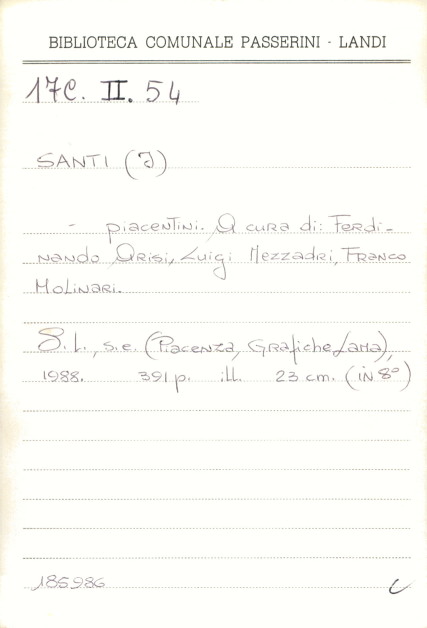 BIBLIOTECA COMUNALE PASSERINI - LANDI
17C. II. 54
SANTI (I)
- piacentini. A cura di: Ferdi-
nando Arisi, Luigi Mezzadri, Franco
Molinari.
S.l., s.e. (Piacenza, Grafiche Lama),
1988. 391 p. ill. 23 cm. (in 8°)
185986